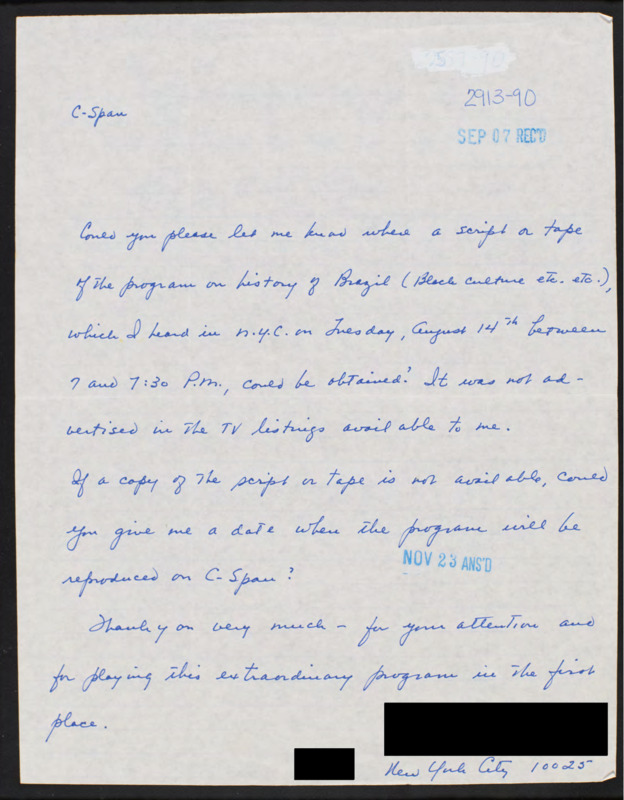 2913-90
SEP 07 REC'D
C-Span
Could you please let me know where a script or tape
of the program on history of Brazil (Black culture etc. etc.),
which I heard in N.Y.C. on Tuesday, August 14th between
7 and 7:30 P.M., could be obtained? It was not ad-
vertised in the TV listings available to me.
If a copy of the script or tape is not available, could
you give me a date when the program will be
reproduced on C-Span?
NOV 23 ANS'D
Thank you very much - for your attention and
for playing this extraordinary program in the first
place.
New York City 10025